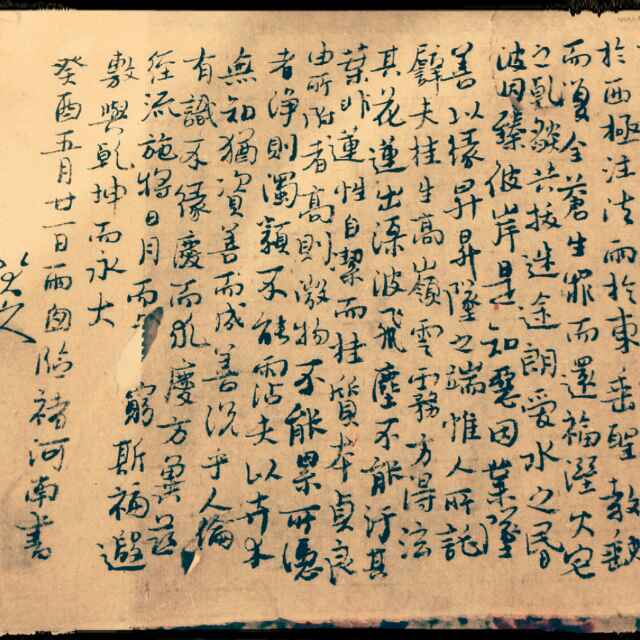 於西極注法雨於東垂聖教缺
而復全蒼生罪而還福溼火宅
之乾燄共拔迷途朗愛水之昏
波同臻彼岸是知惡因業墜
善以緣昇昇墜之端惟人所託
譬夫桂生高嶺雲霧方得泫
其花蓮出淥波飛塵不能汙其
葉非蓮性自潔而桂質本貞良
由所附者高則微物不能累所憑
者淨則濁類不能霑夫以卉木
無知猶資善而成善況乎人倫
有識不緣慶而求慶方冀茲
經流施將日月而窮斯福遐
敷與乾坤而永大
癸酉五月廿一日雨窗臨褚河南書